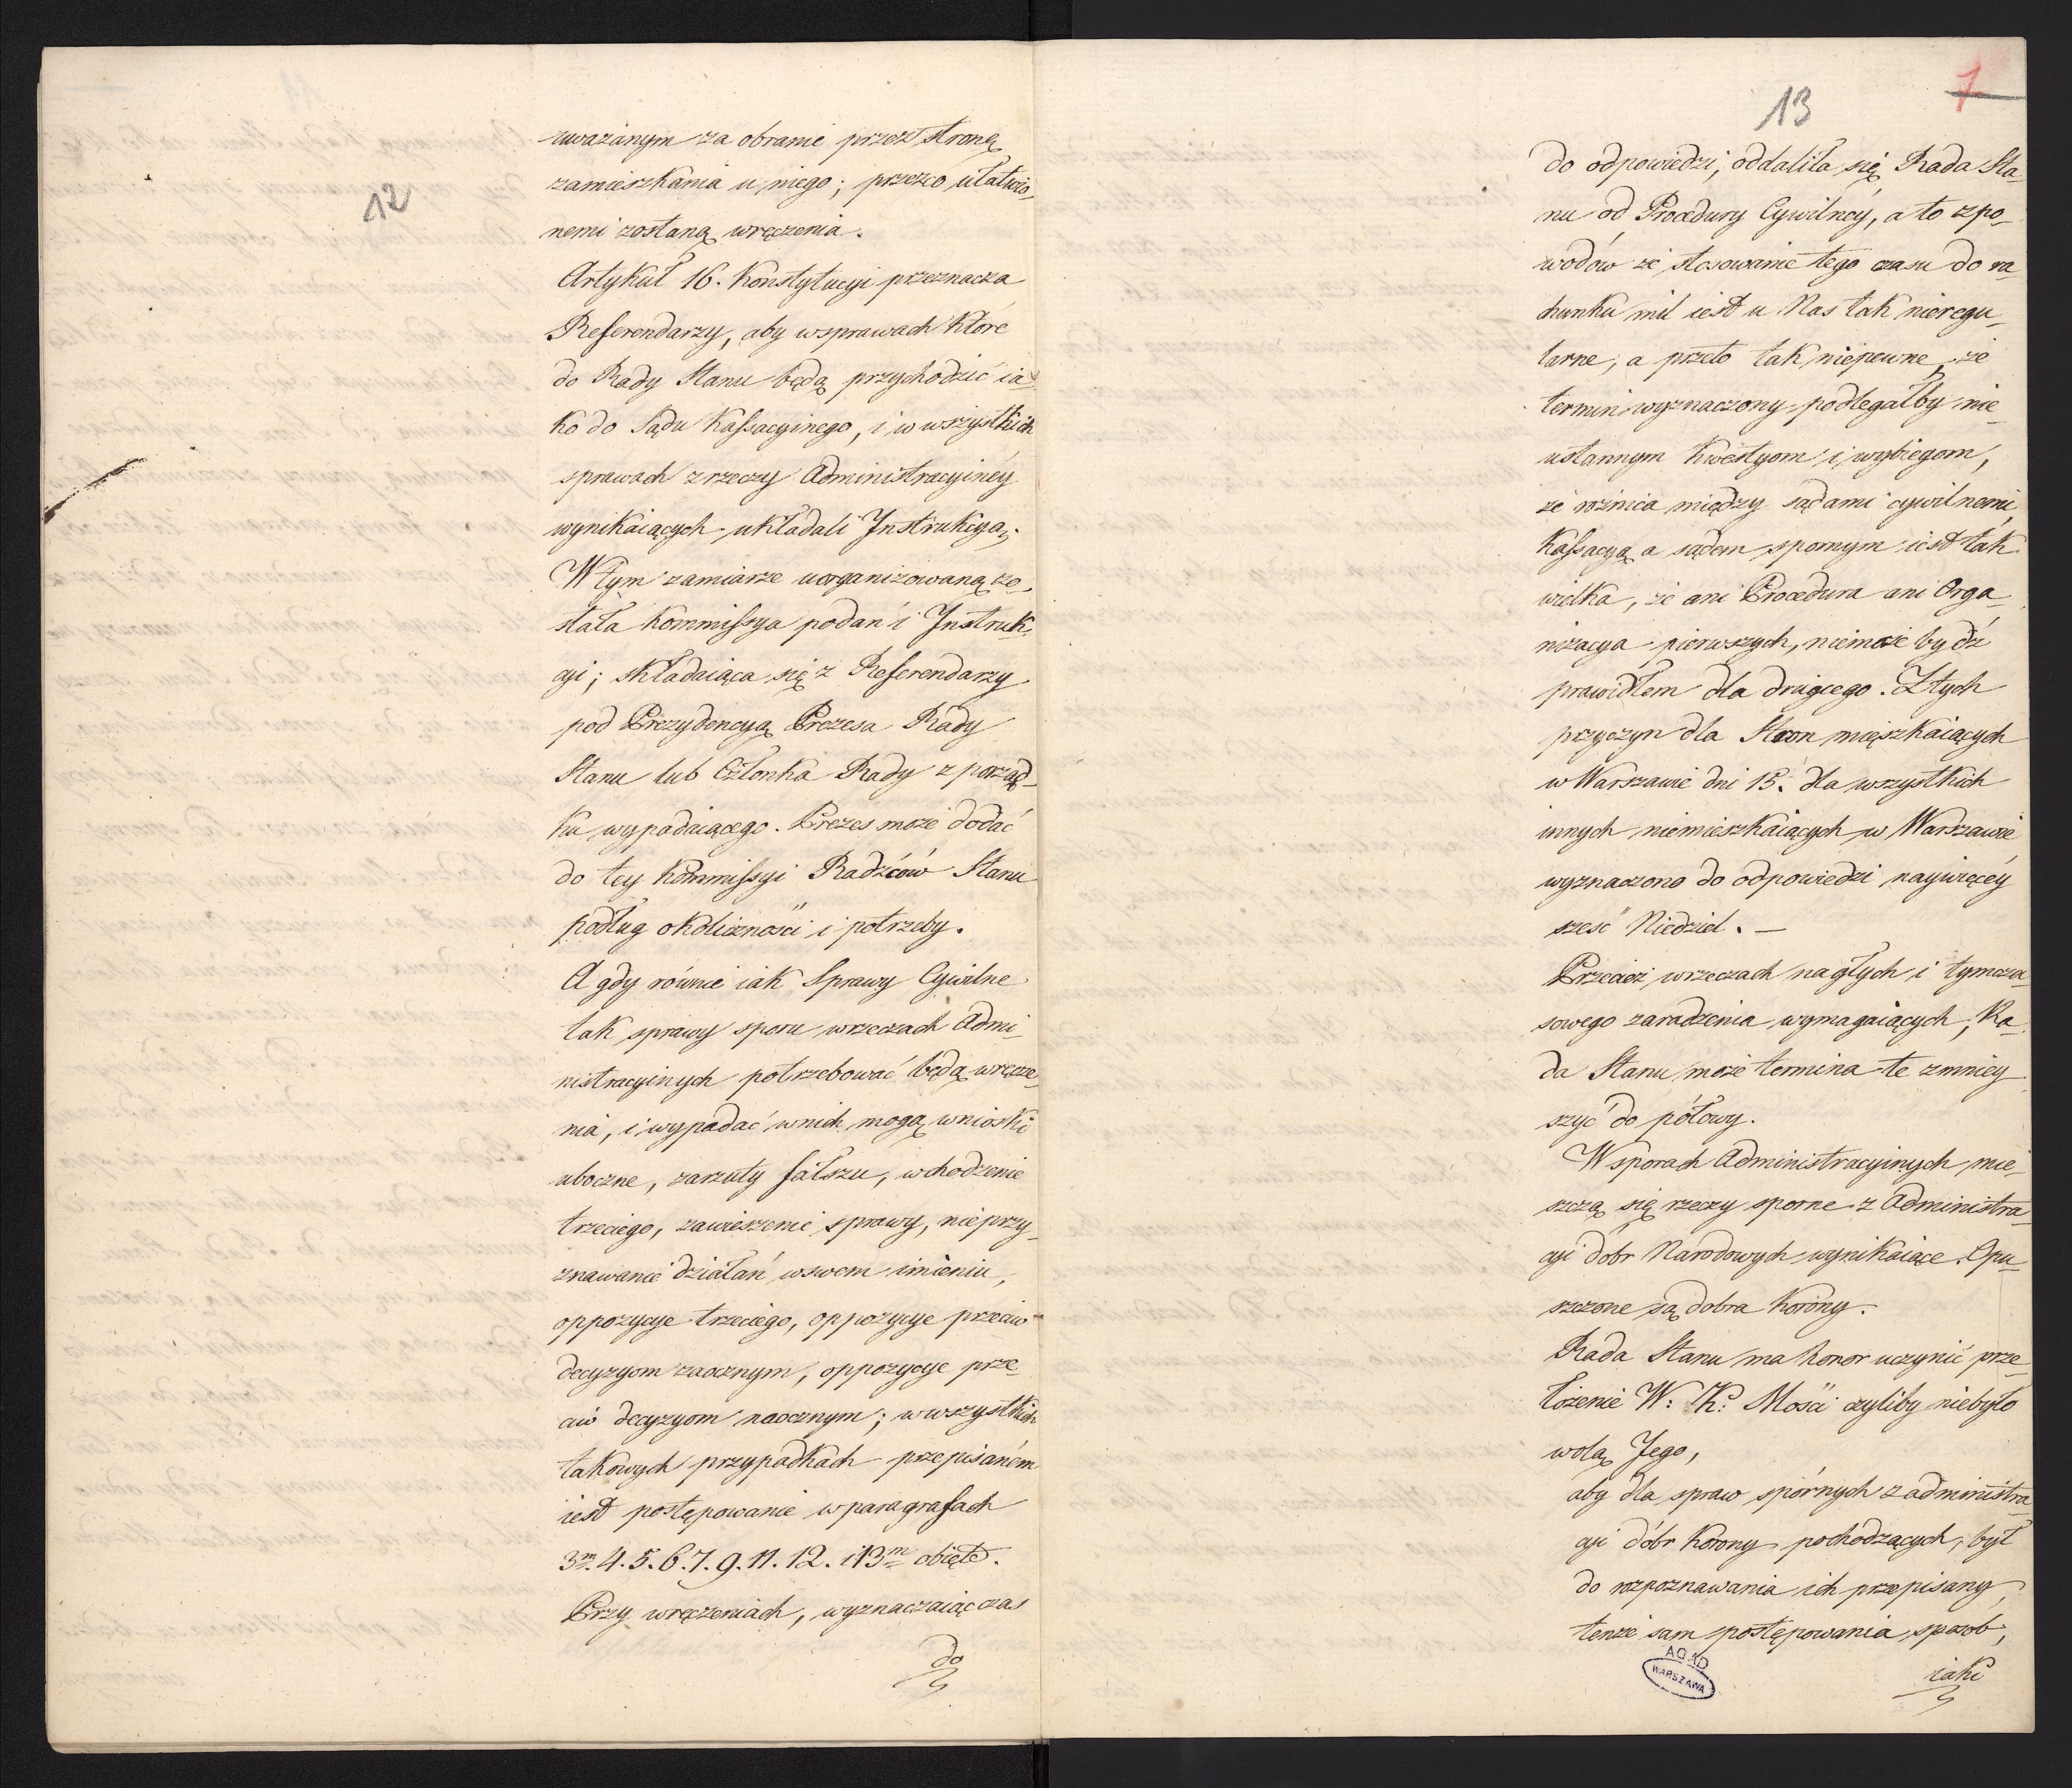 12
uważanym za obranie przez stronę
zamieszkania u niego; przezco ułatwio-
nemi zostaną wręczenia.
Artykuł 16. Konstytucyi przeznacza
Referendarzy, aby wsprawach które
do Rady Stanu będą przychodzić ia-
ko do Sądu Kassacyinego, i w wszystkich
sprawach z rzeczy Administracyiney
wynikaiących układali Instrukcyą.
W tym zamiarze uorganizowaną zo-
stała Kommissya podań i Instruk-
cyi; składaiąca się z Referendarzy
pod Prezydencyą Prezesa Rady
Stanu lub Członka Rady z porząd-
ku wypadaiącego. Prezes może dodać
do tey Kommissyi Radźców Stanu
podług okoliczności i potrzeby.
A gdy równie iak Sprawy Cywilne
tak sprawy sporu wrzeczach Admi-
nistracyinych potrzebować będą wręcze-
nia, i wypadać wnich mogą wnioski
uboczne, zarzuty fałszu, wchodzenie
trzeciego, zawieszenie sprawy, nieprzy-
znawanie działań wswem imieniu,
oppozycye trzeciego, oppozycye przeciw
decyzyom zaocznym, oppozycye prze-
ciw decyzyom naocznym; w wszystkich
takowych przypadkach przepisanem
iest postępowanie wparagrafach
3m. 4. 5. 6. 7. 9. 11. 12. i 13m obięte.
Przy wręczeniach, wyznaczaiąc czas
do
7
13
do odpowiedzi, oddaliła się Rada Sta-
nu od Procedury Cywilney, a to zpo-
wodów że stosowanie tego czasu do ra
chunku mil iest u Nas tak nieregu-
larne, a przeto tak niepewne, że
termin wyznaczony podlegałby nie
ustannym kwestyom i wybiegom,
że rożnica między sądami cywilnemi,
Kassacyą a sądem spornym iest tak
wielka, że ani Procedura ani Orga-
nizacya pierwszych, niemoże bydź
prawidłem dla drugiego. Z tych
przyczyn dla Stron mięszkaiących
w Warszawie dni 15. dla wszystkich
innych niemieszkaiących w Warszawie
wyznaczono do odpowiedzi naywięcéy
szesc Niedziel. —
Przecież wrzeczach nagłych i tymcza-
sowego zaradzenia wymagaiących, Ra-
da Stanu może termina te zmniey
szyć do połowy.
W sporach Administracyinych mie-
szczą się rzeczy sporne z Administra-
cyi dóbr Narodowych wynikaiące. Opu-
szczone są dobra Korony.
Rada Stanu ma honor uczynić prze-
łożenie W: K: Mości czyliby niebyło
wolą Jego,
aby dla spraw spornych z administra
cyi dóbr Korony pochodzących, był
do rozpoznawania ich przepisany,
tenże sam postępowania sposob,
iaki
AGAD
WARSZAWA